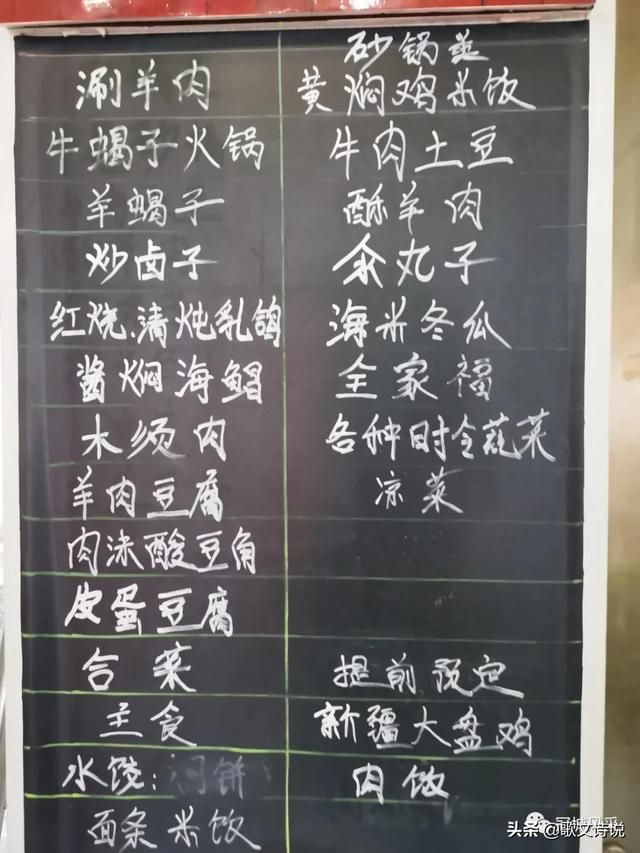 涮羊肉
牛蝎子火锅
羊蝎子
炒卤子
红烧.清炖乳鸽
酱焖海鲳
木须肉
羊肉豆腐
肉沫酸豆角
皮蛋豆腐
合菜
主食
水饺: 闷饼
面条米饭
砂锅类
黄焖鸡米饭
牛肉土豆
酥羊肉
汆丸子
海米冬瓜
全家福
各种时令蔬菜
凉菜
提前预定
新疆大盘鸡
肉饭
头条 @歌文诗说